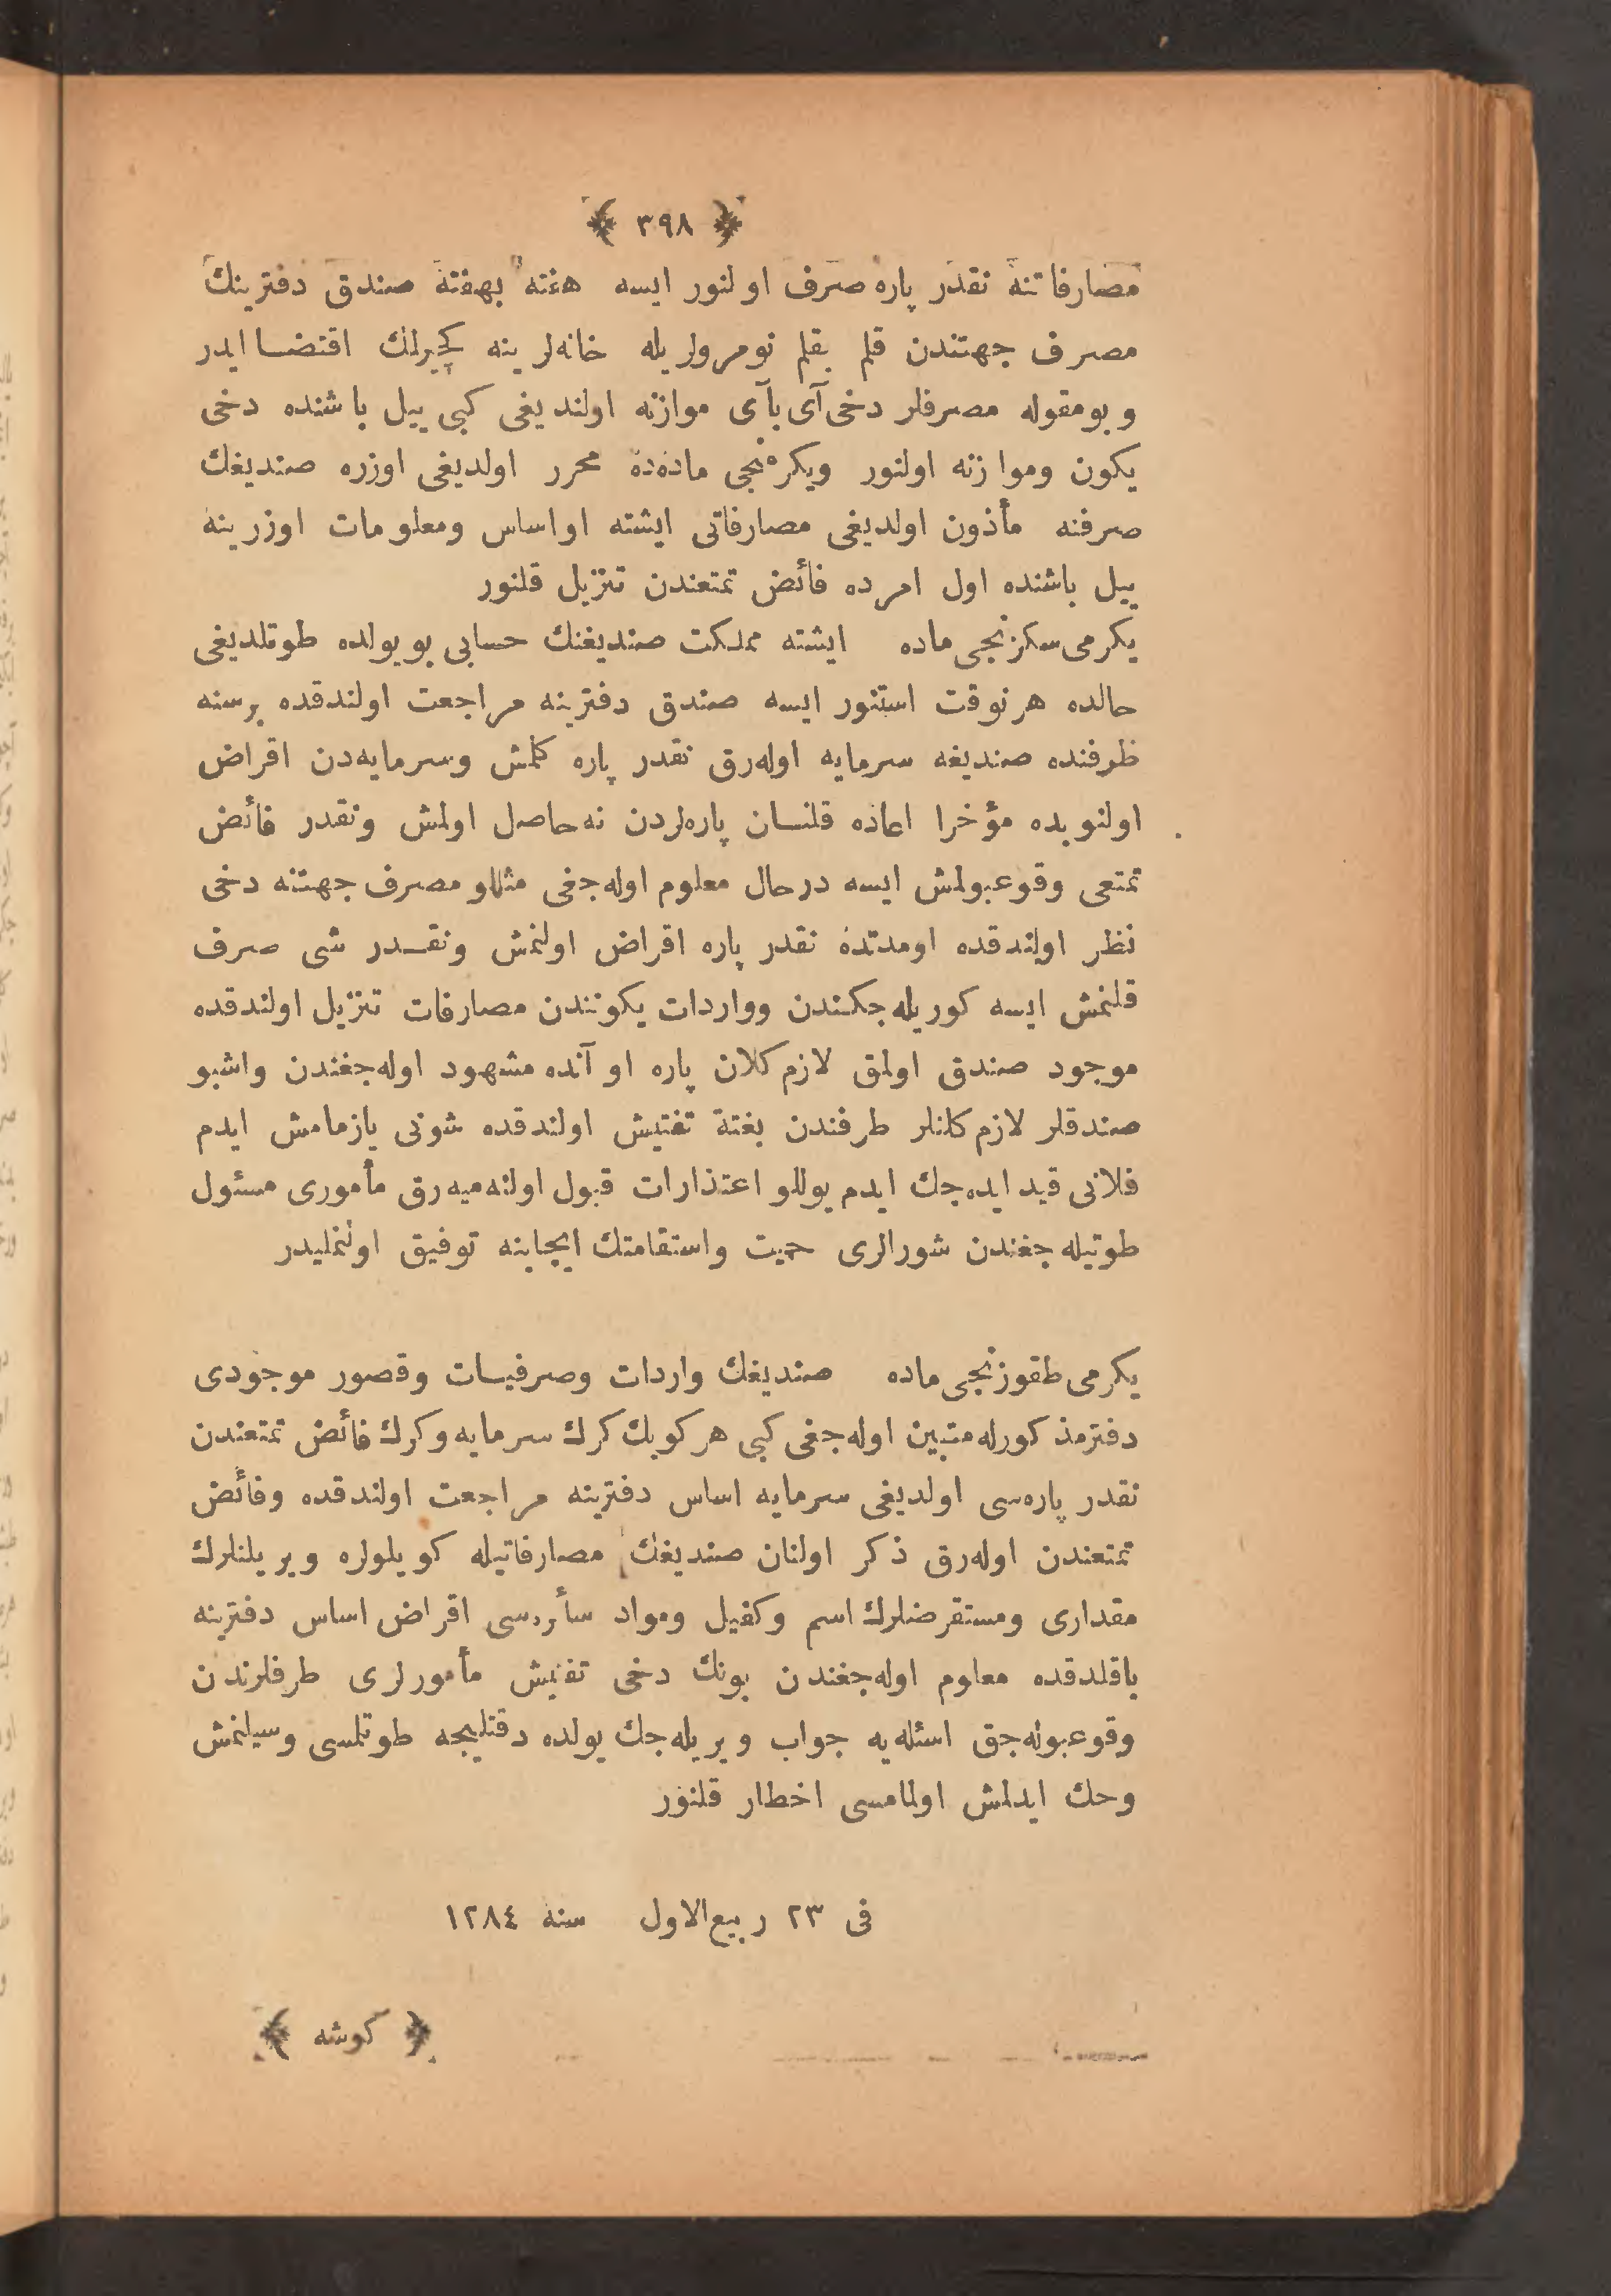 ﴿ ٣٩٨ ﴾
مصارفاتنه نقدر پاره صرف اولنور ايسه هفته بهفته صندق دفترينك
مصرف جهتندن قلم بقلم نومرولريله خانه‌لرينه كچيرلمك اقتضا ايدر
وبومقوله مصرفلر دخى آى بآى موازنه اولنديغى كبى ييل باشنده دخى
يكون وموازنه اولنور ويكرمنجى ماده‌ده محرر اولديغى اوزره صنديغك
صرفنه مأذون اولديغى مصارفاتى ايشته اواساس ومعلومات اوزرينه
ييل باشنده اول امرده فائض تمتعندن تنزيل قلنور
يكرمى سكزنجى ماده ايشته مملكت صنديغنك حسابى بويولده طوتلديغى
حالده هرنوقت استنور ايسه صندق دفترينه مراجعت اولندقده برسنه
ظرفنده صنديغه سرمايه اوله‌رق نقدر پاره كلمش وسرمايه‌دن اقراض
اولنوبده مؤخرا اعاده قلنسان پاره‌لردن نه‌حاصل اولمش ونقدر فائض
تمتعى وقوعبولمش ايسه درحال معلوم اوله‌جغى مثللو مصرف جهتنه دخى
نظر اولندقده اومدتده نقدر پاره اقراض اولنمش ونقدر شى صرف
قلنمش ايسه كوريله‌جكندن وواردات يكونندن مصارفات تنزيل اولندقده
موجود صندق اولمق لازم‌كلان پاره اوآنده مشهود اوله‌جغندن واشبو
صندقلر لازم‌كلنلر طرفندن بغتة تفتيش اولندقده شونى يازمامش ايدم
فلانى قيد ايده‌جك ايدم يوللو اعتذارات قبول اولنه‌ميه‌رق مأمورى مسئول
طوتيله‌جغندن شورالرى حميت واستقامتك ايجابنه توفيق اولنمليدر
يكرمى طقوزنجى ماده صنديغك واردات وصرفيات وقصور موجودى
دفترمذكورله متبين اوله‌جغى كبى هركويك كرك سرمايه وكرك فائض تمتعندن
نقدر پاره‌سى اولديغى سرمايه اساس دفترينه مراجعت اولندقده وفائض
تمتعندن اوله‌رق ذكر اولنان صنديغك مصارفاتيله كويلولره ويريلنلرك
مقدارى ومستقرضلرك اسم وكفيل ومواد سائره‌سى اقراض اساس دفترينه
باقلدقده معلوم اوله‌جغندن بونك دخى تفتيش مأمورلرى طرفلرندن
وقوعبوله‌جق اسئله‌يه جواب ويريله‌جك يولده دقتليجه طوتلمسى وسيلنمش
وحك ايدلمش اولمامسى اخطار قلنور
فى ٢٣ ربيع‌الاول سنه ١٢٨٤
﴿ كوشه ﴾